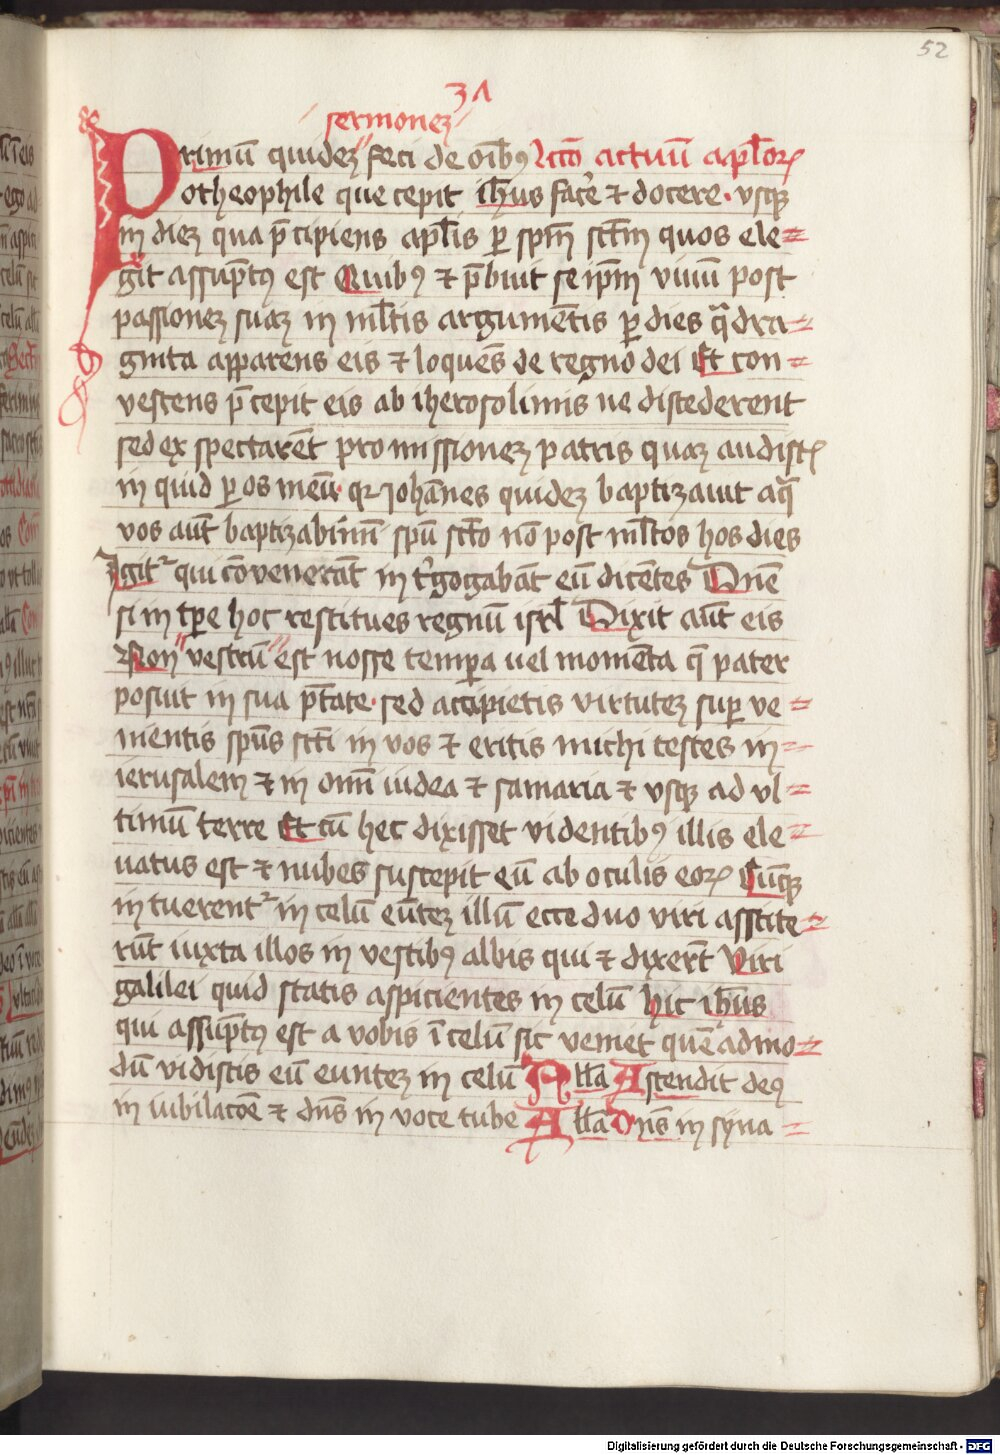 52
31
sermonez
Primū quidez feci de oībꝯ Lcō actuū apl̄oꝝ
otheophile que cepit ih̄us fac̄e ⁊ docere · vsqꝫ
in diez qua p̄cipiens apl̄is ꝑ spm̄ sct̄m quos ele=
git assūptꝯ est Quibꝯ ⁊ p̄buit se ip̄m viuū post
passionez suaz in ml̄tis argumētis ꝑ dies q̄dra=
ginta apparens eis ⁊ loquēs de regno dei Et con=
vescens p̄cepit eis ab iherosolimis ne discederent
sed ex spectarēt promissionez patris quaz audistꝭ
in quid ꝑ os meū · qꝛ Johānes quidez baptizauit aq̄
vos aūt baptizabimī spū sct̄o nō post ml̄tos hos dies
Igitᷣ qui cōvenerāt in t̄rogabāt eū dicētes Dn̄e
si in tꝑe hoc restitues regnū isrl̄ Dixit aūt eis
Non vestrū est nosse tempora uel momēta q̄ pater
posuit in sua p̄tate · sed accipietis virtutez suꝑ ve=
nientis spūs sct̄i in vos ⁊ eritis michi testes in=
ierusalem ⁊ in omī iudea ⁊ samaria ⁊ vsqꝫ ad vl=
timū terre Et cū hec dixisset videntibꝯ illis ele=
uatus est ⁊ nubes suscepit eū ab oculis eoꝝ Cūqꝫ
in tuerentᷣ in celū eūtez illū ecce duo viri asstite=
rūt iuxta illos in vestibꝯ albis qui ⁊ dixerūt Viri
galilei quid statis aspicientes in celū hic ih̄us
qui assūptꝯ est a vobis ī celū sic veniet quē admo=
dū vidistis eū euntez in celū All̄a Ascendit deꝯ
in iubilacōe ⁊ dn̄s in voce tube All̄a Dn̄s in syna=
Digitalisierung gefördert durch die Deutsche Forschungsgemeinschaft - DFG